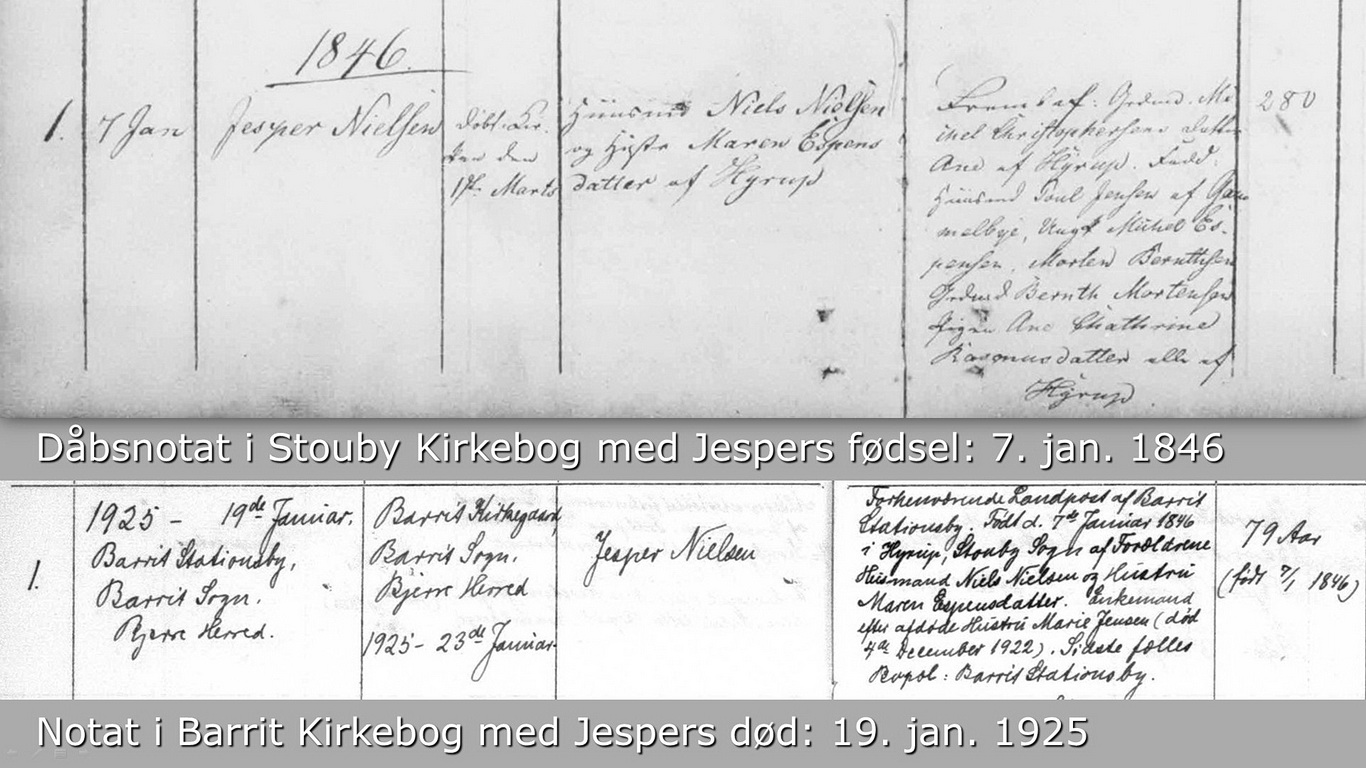 1846.
1. 7 Jan Jesper Nielsen
Döbt i Kir-
ken den
1ste Marts
Huusmd Niels Nielsen
og Hustr Maren Espens
datter af Hyrup
Frembaf: Grdmd. Mi
chel Christophersens Datter
Ane af Hyrup. Fadd:
Huusmd Poul Jensen af Gam
melbye, Ungk Michel Es-
pensen, Morten Bernthsen
Grdmd Bernth Mortensen
Pigen Ane Chathrine
Rasmusdatter alle af
Hyrup
280
Dåbsnotat i Stouby Kirkebog med Jespers fødsel: 7. jan. 1846
1.
1925 - 19de Januar.
Barrit Stationsby,
Barrit Sogn.
Bjerre Herred.
Barrit Kirkegaard
Barrit Sogn.
Bjerre Herred
1925 - 23de Januar
Jesper Nielsen
Forhenværende Landpost af Barrit
Stationsby. Født d. 7de Januar 1846
i Hyrup, Stouby Sogn af Forældrene
Husmand Niels Nielsen og Hustru
Maren Espensdatter. Enkemand
efter afdøde Hustru Marie Jensen (død
4de December 1922). Sidste fælles
Bopæl: Barrit Stationsby.
79 Aar
(født 7/1 1846)
Notat i Barrit Kirkebog med Jespers død: 19. jan. 1925